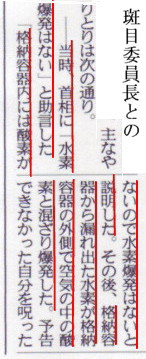 斑目委員長との
主なや
りとりは次の通り。
――当時、首相に「水素
爆発はない」と助言した
「格納容器内には酸素が
ないので水素爆発はないと
説明した。その後、格納容
器から漏れ出た水素が格納
容器の外側で空気の中の酸
素と混ざり爆発した。予告
できなかった自分を呪った